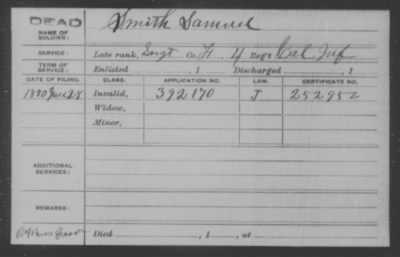 DEAD
NAME OF SOLDIER: Smith Samuel
SERVICE: Late rank, Sergt Co. H, 4 Reg't Cal Inf
TERM OF SERVICE: Enlisted , 1 Discharged , 1
DATE OF FILING. CLASS. APPLICATION NO. LAW. CERTIFICATE NO.
1880 June 25 Invalid, 392170 J 252952
Widow,
Minor,
ADDITIONAL SERVICES:
REMARKS:
Died , 1 , at